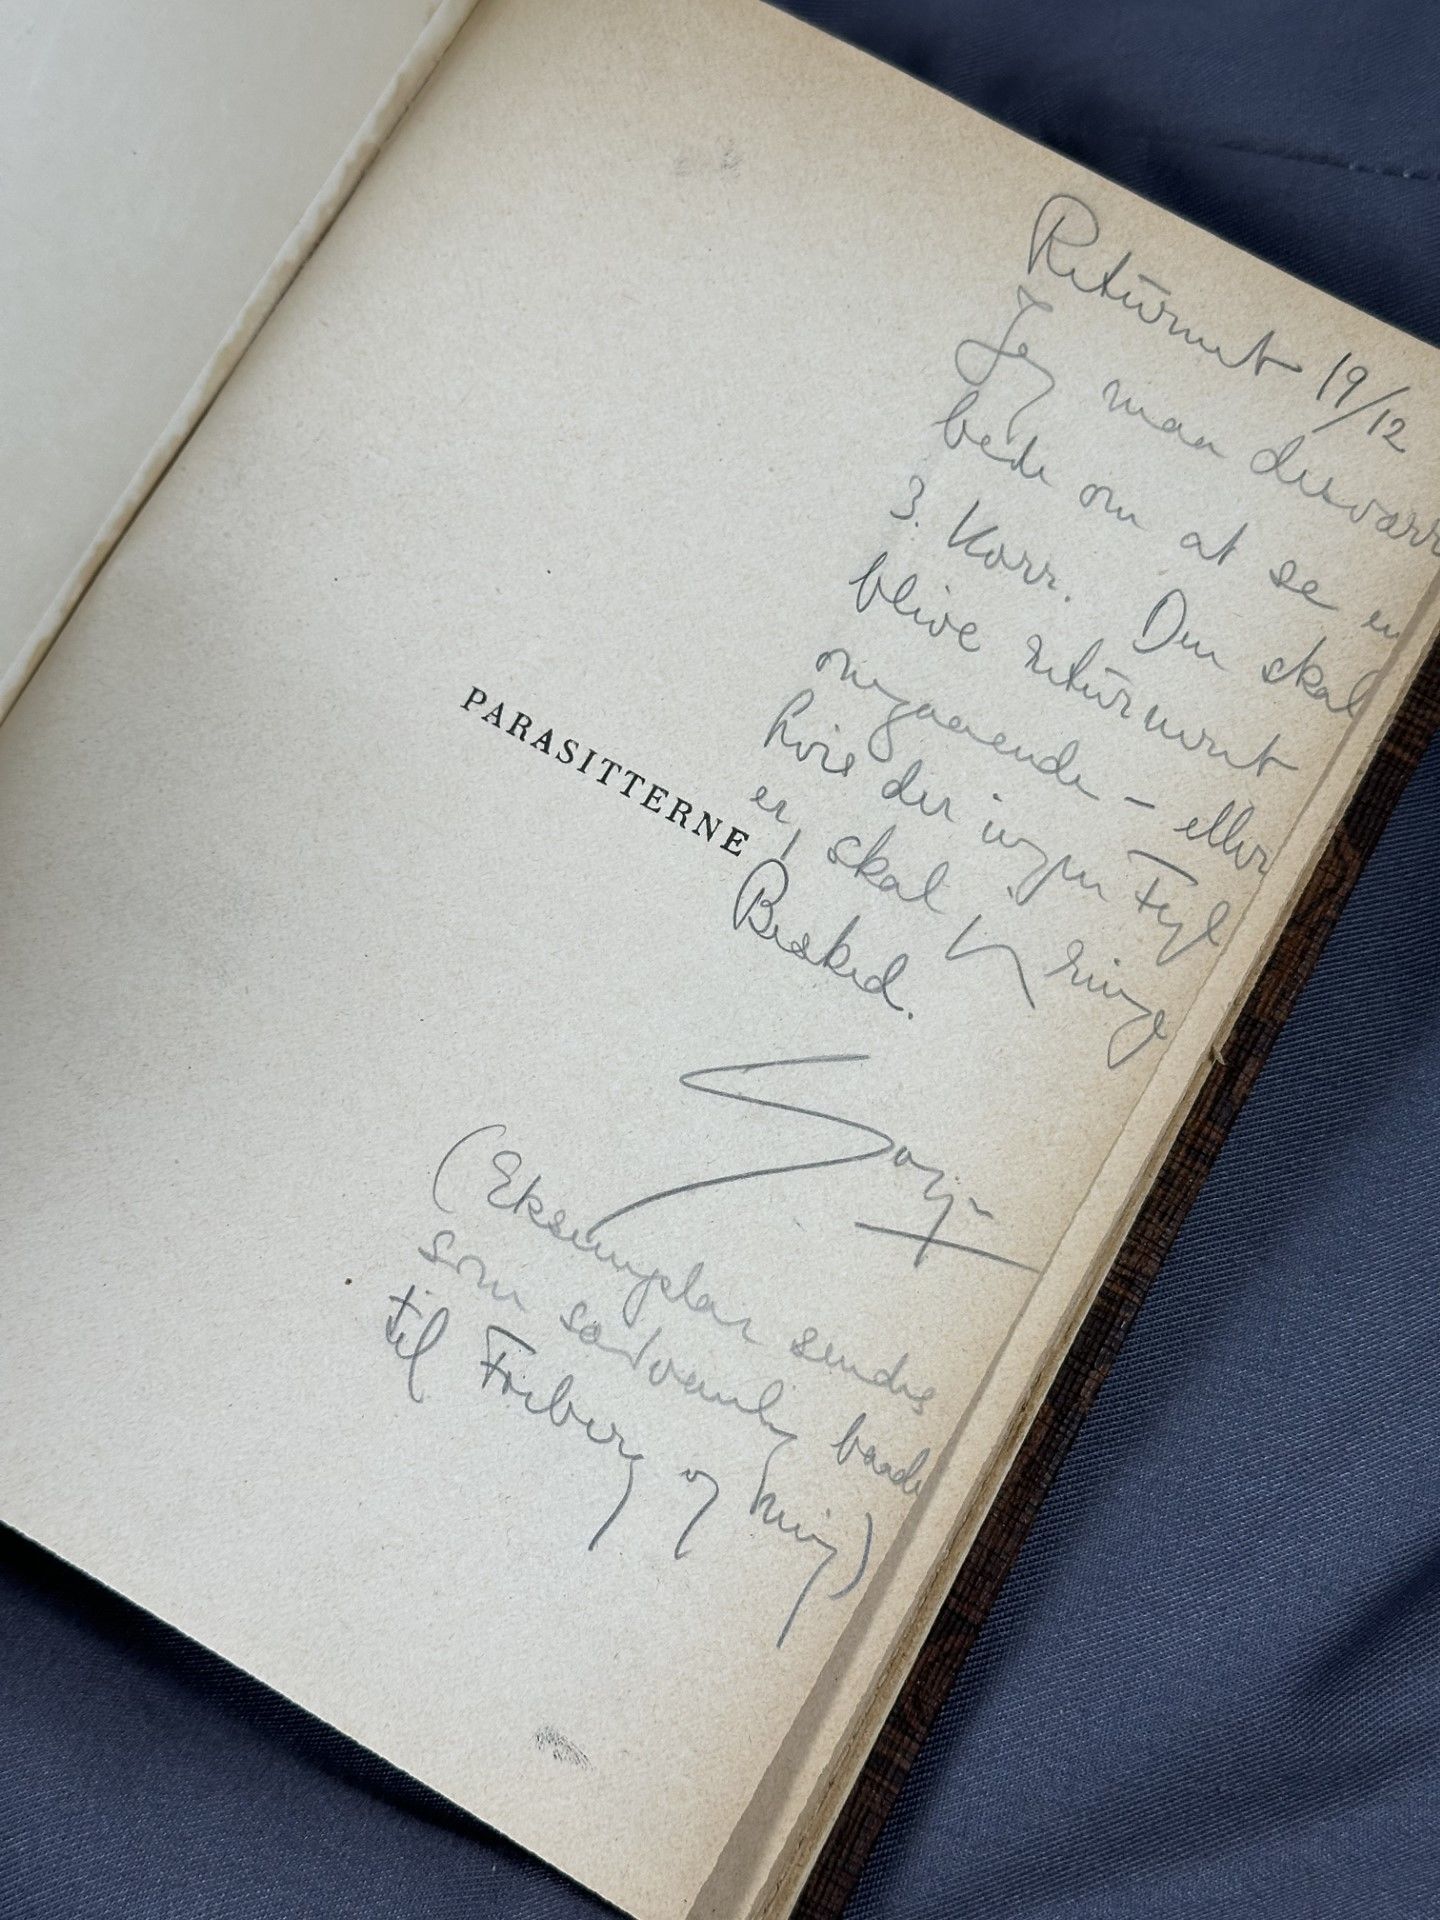 Returneret 19/12
Jeg maa desværre
bede om at se en
3. Korr. Den skal
blive returneret
omgaaende – eller
hvis der ingen Fejl
er, skal ringe
Besked.
(Eksemplar sendes
som sædvanlig baade
til Freiberg og mig)
PARASITTERNE